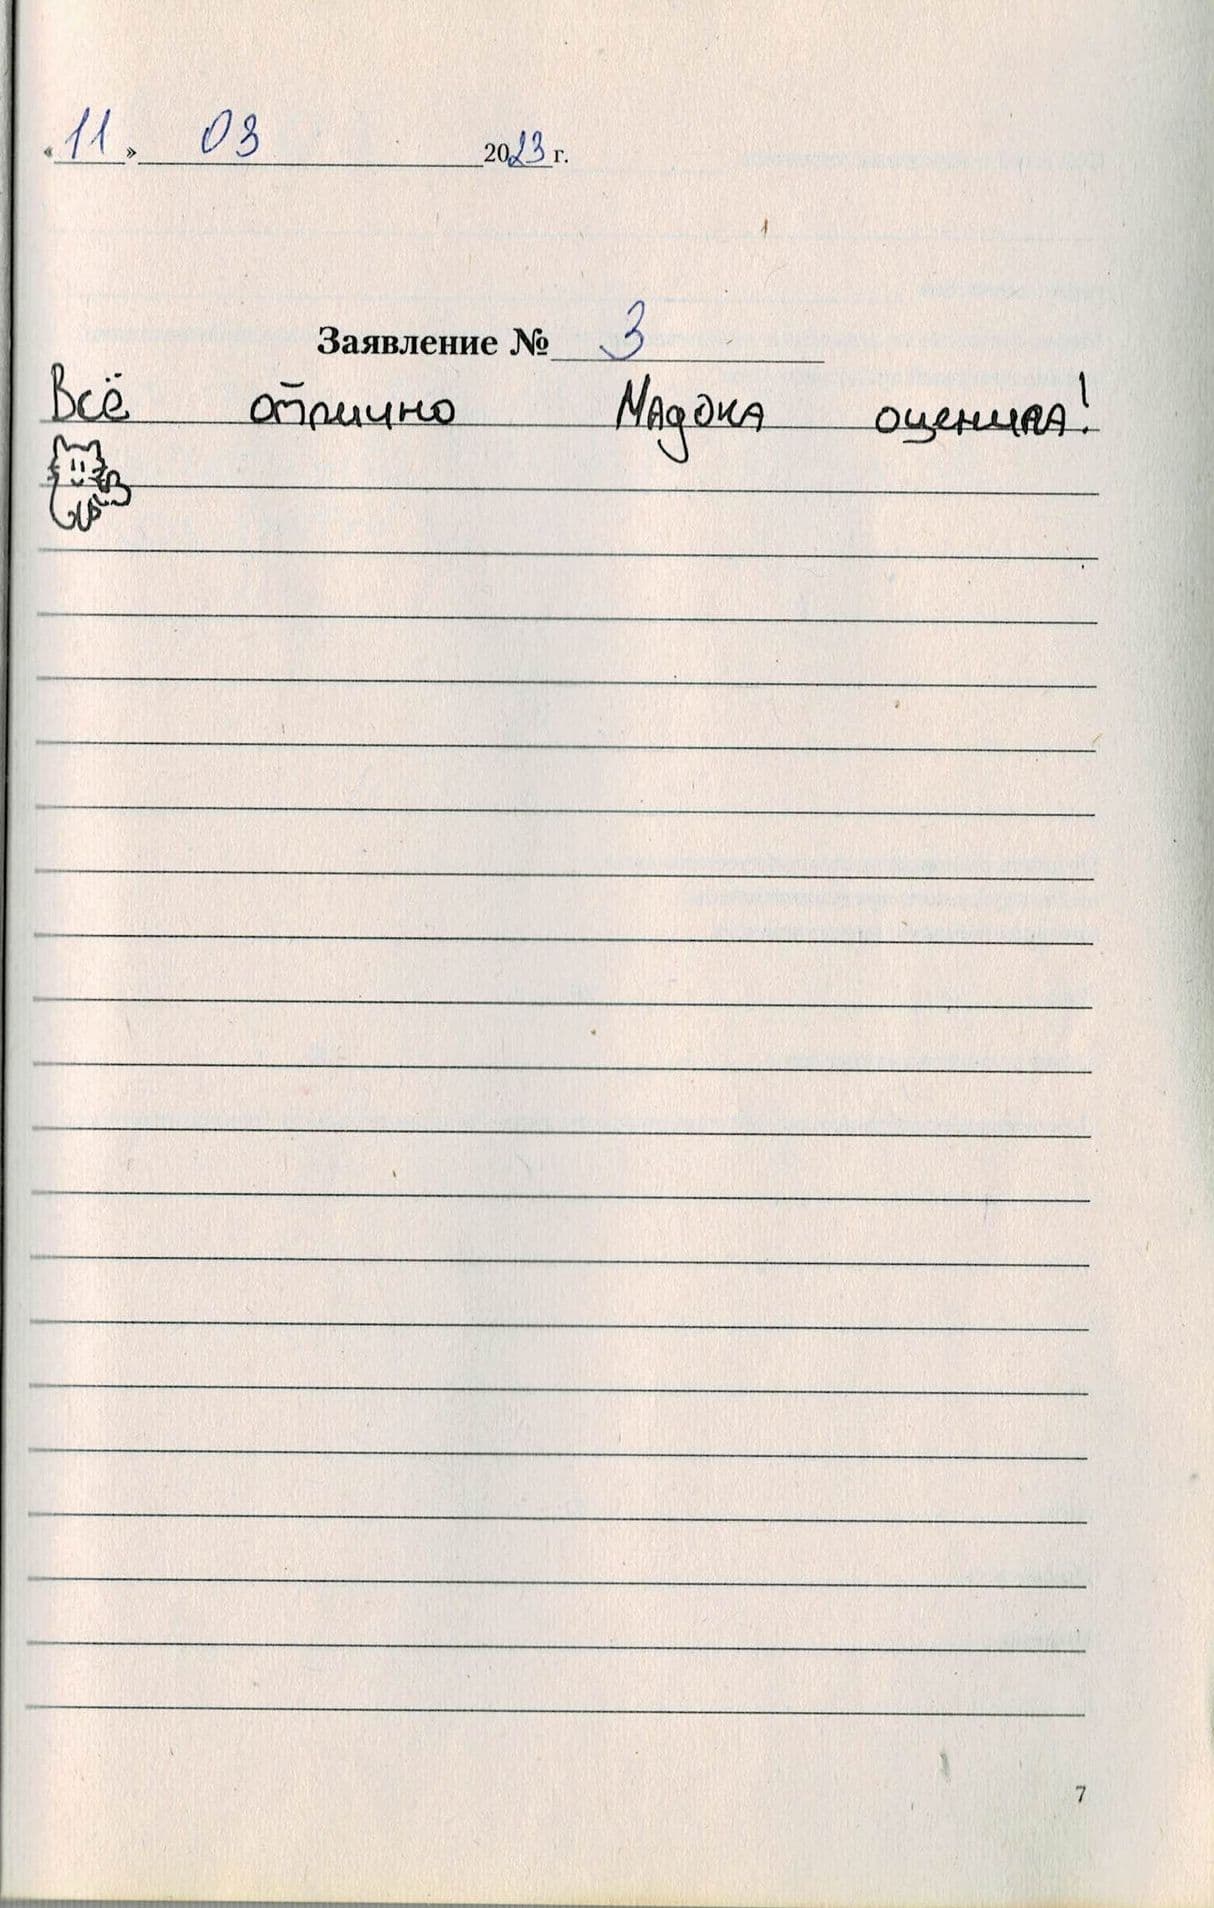 «11» 03 2023 г.
Заявление № 3
Всё отлично Мадока оценила!
7